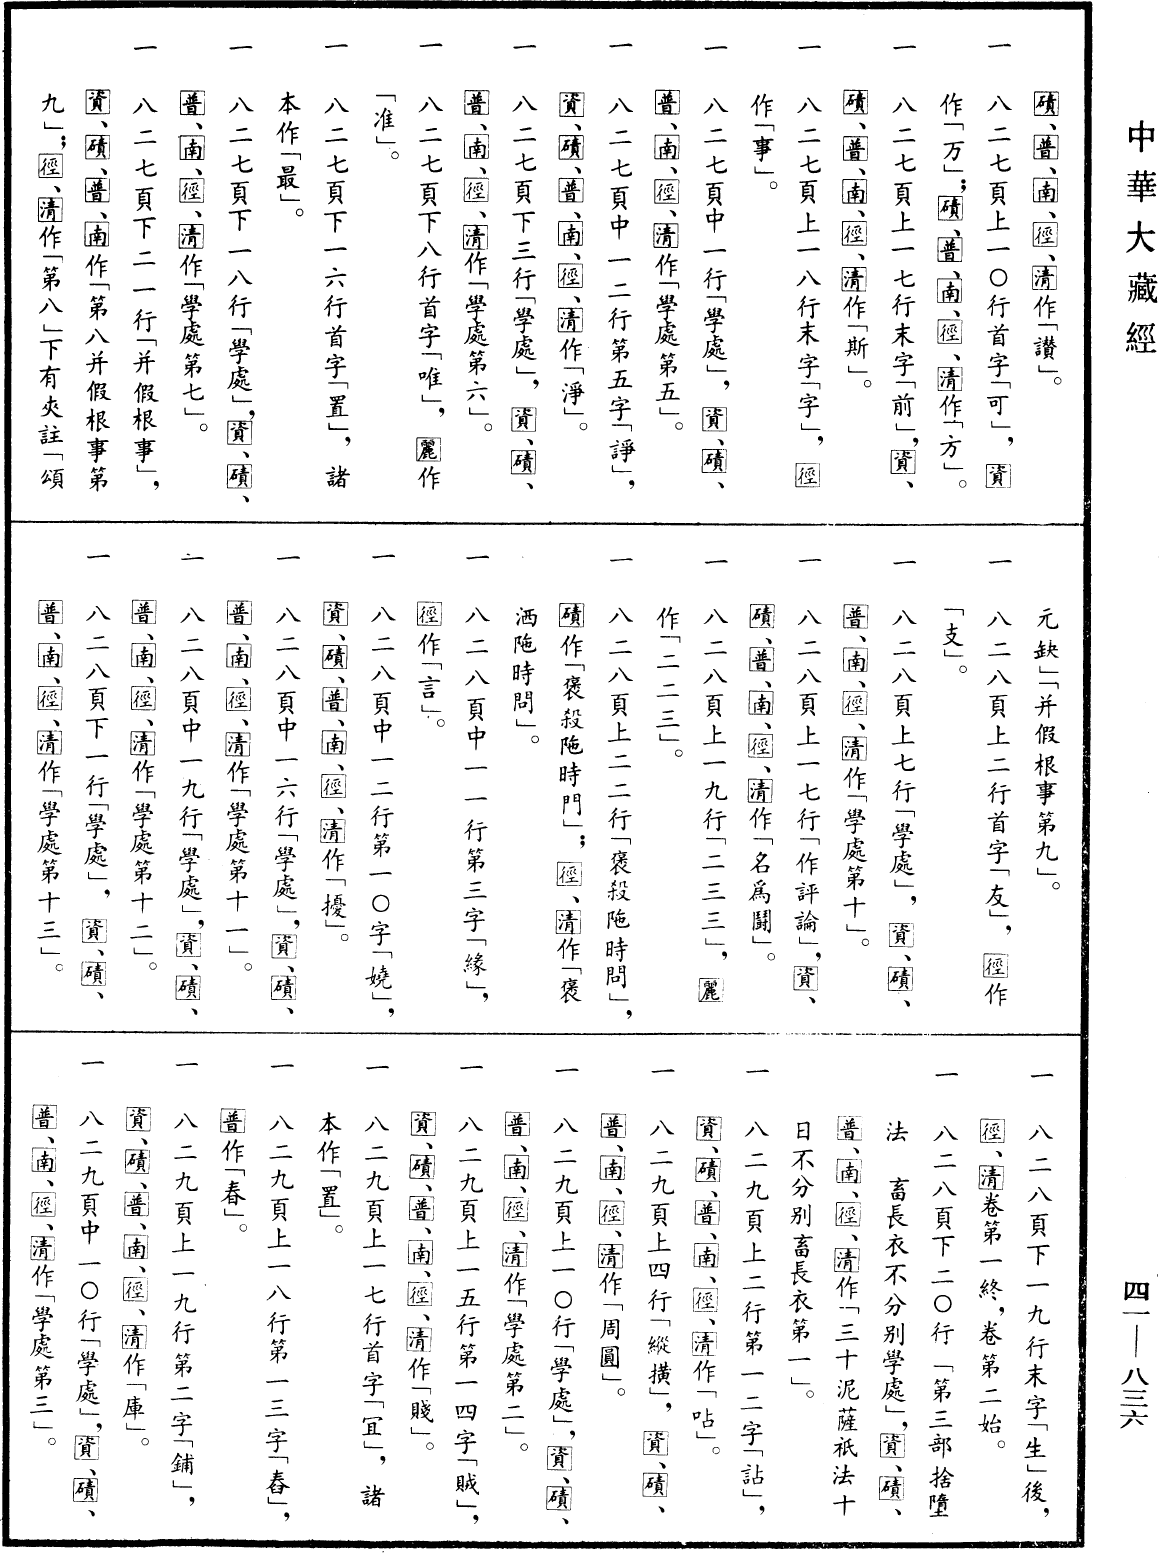 中華大藏經
磧、普、南、徑、清作「讚」。
一　八二七頁上一〇行首字「可」，資
作「万」；磧、普、南、徑、清作「方」。
一　八二七頁上一七行末字「前」，資、
磧、普、南、徑、清作「斯」。
一　八二七頁上一八行末字「字」，徑
作「事」。
一　八二七頁中一行「學處」，資、磧、
普、南、徑、清作「學處第五」。
一　八二七頁中一二行第五字「諍」，
資、磧、普、南、徑、清作「淨」。
一　八二七頁下三行「學處」，資、磧、
普、南、徑、清作「學處第六」。
一　八二七頁下八行首字「唯」，麗作
「准」。
一　八二七頁下一六行首字「置」，諸
本作「最」。
一　八二七頁下一八行「學處」，資、磧、
普、南、徑、清作「學處第七」。
一　八二七頁下二一行「并假根事」，
資、磧、普、南作「第八并假根事第
九」；徑、清作「第八」下有夾註「頌
元缺」「并假根事第九」。
一　八二八頁上二行首字「友」，徑作
「支」。
一　八二八頁上七行「學處」，資、磧、
普、南、徑、清作「學處第十」。
一　八二八頁上一七行「作評論」，資、
磧、普、南、徑、清作「名為鬪」。
一　八二八頁上一九行「二三三」，麗
作「二二三」。
一　八二八頁上二二行「褒殺陁時問」，
磧作「褒殺陁時門」；徑、清作「褒
洒陁時問」。
一　八二八頁中一一行第三字「緣」，
徑作「言」。
一　八二八頁中一二行第一〇字「嬈」，
資、磧、普、南、徑、清作「擾」。
一　八二八頁中一六行「學處」，資、磧、
普、南、徑、清作「學處第十一」。
一　八二八頁中一九行「學處」，資、磧、
普、南、徑、清作「學處第十二」。
一　八二八頁下一行「學處」，資、磧、
普、南、徑、清作「學處第十三」。
一　八二八頁下一九行末字「生」後，
徑、清卷第一終，卷第二始。
一　八二八頁下二〇行「第三部捨墮
法　畜長衣不分別學處」，資、磧、
普、南、徑、清作「三十泥薩祇法十
日不分別畜長衣第一」。
一　八二九頁上二行第一二字「詀」，
資、磧、普、南、徑、清作「呫」。
一　八二九頁上四行「縱橫」，資、磧、
普、南、徑、清作「周圓」。
一　八二九頁上一〇行「學處」，資、磧、
普、南、徑、清作「學處第二」。
一　八二九頁上一五行第一四字「賊」，
資、磧、普、南、徑、清作「賤」。
一　八二九頁上一七行首字「冝」，諸
本作「置」。
一　八二九頁上一八行第一三字「舂」，
普作「春」。
一　八二九頁上一九行第二字「鋪」，
資、磧、普、南、徑、清作「庫」。
一　八二九頁中一〇行「學處」，資、磧、
普、南、徑、清作「學處第三」。
四一—八三六